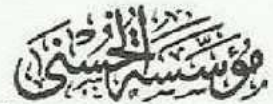 مؤسسة الحسنى